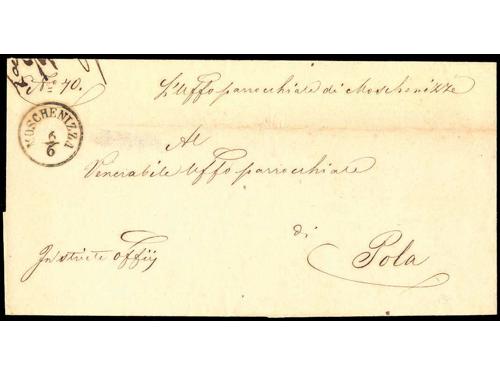 No 70. L'Uffo parrochiale di Moschenizze
MOSCHENIZZA
6/6
Al
Venerabile Uffo parrochiale
di
Pola